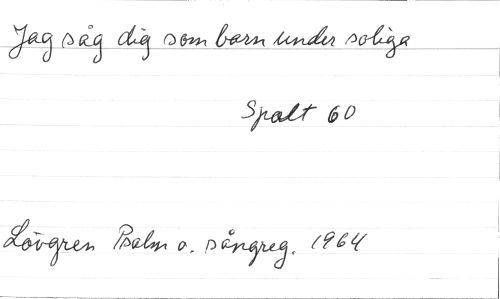 Jag såg dig som barn under soliga
Spalt 60
Lövgren Psalm o. sångreg. 1964